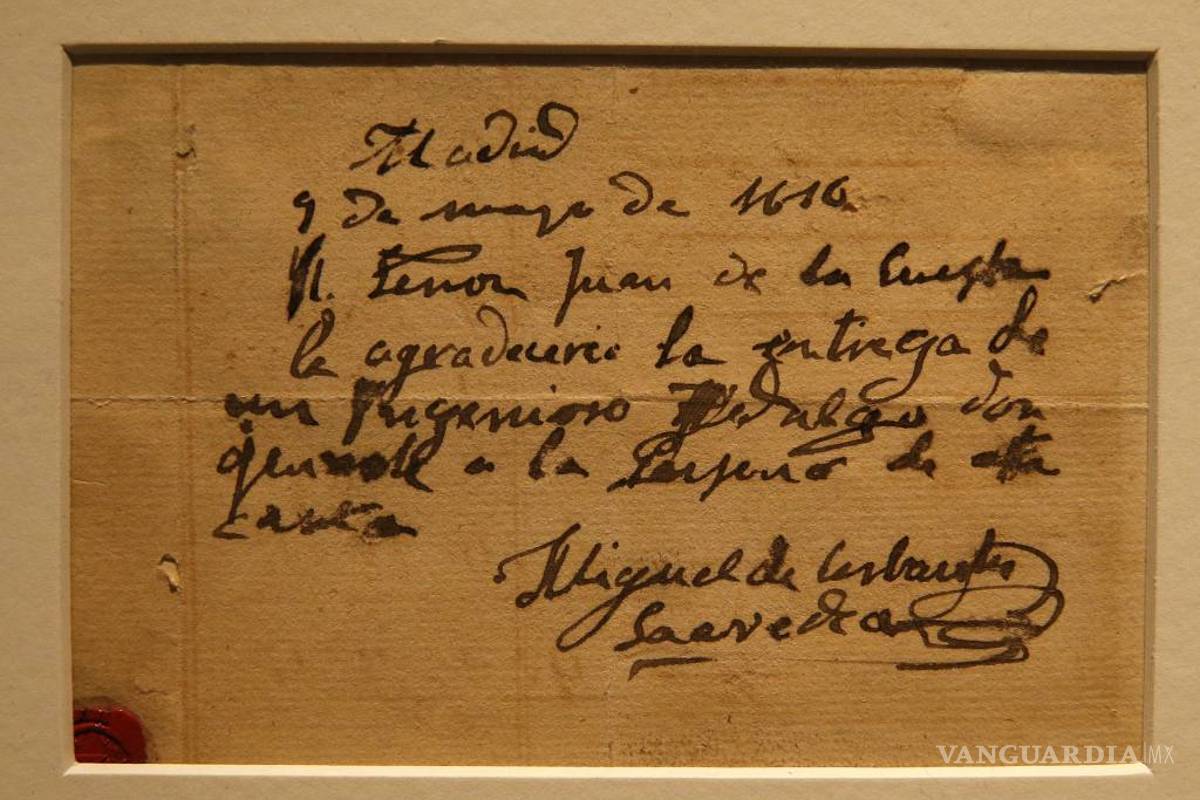 Madrid
9 de mayo de 1616
Sr. Señor Juan de la Cuesta
le agradecere la entrega de
un Ingenioso Hidalgo don
Quixote a la Persona de esta
carta
Miguel de Cerbantes
Saavedra
VANGUARDIA MX